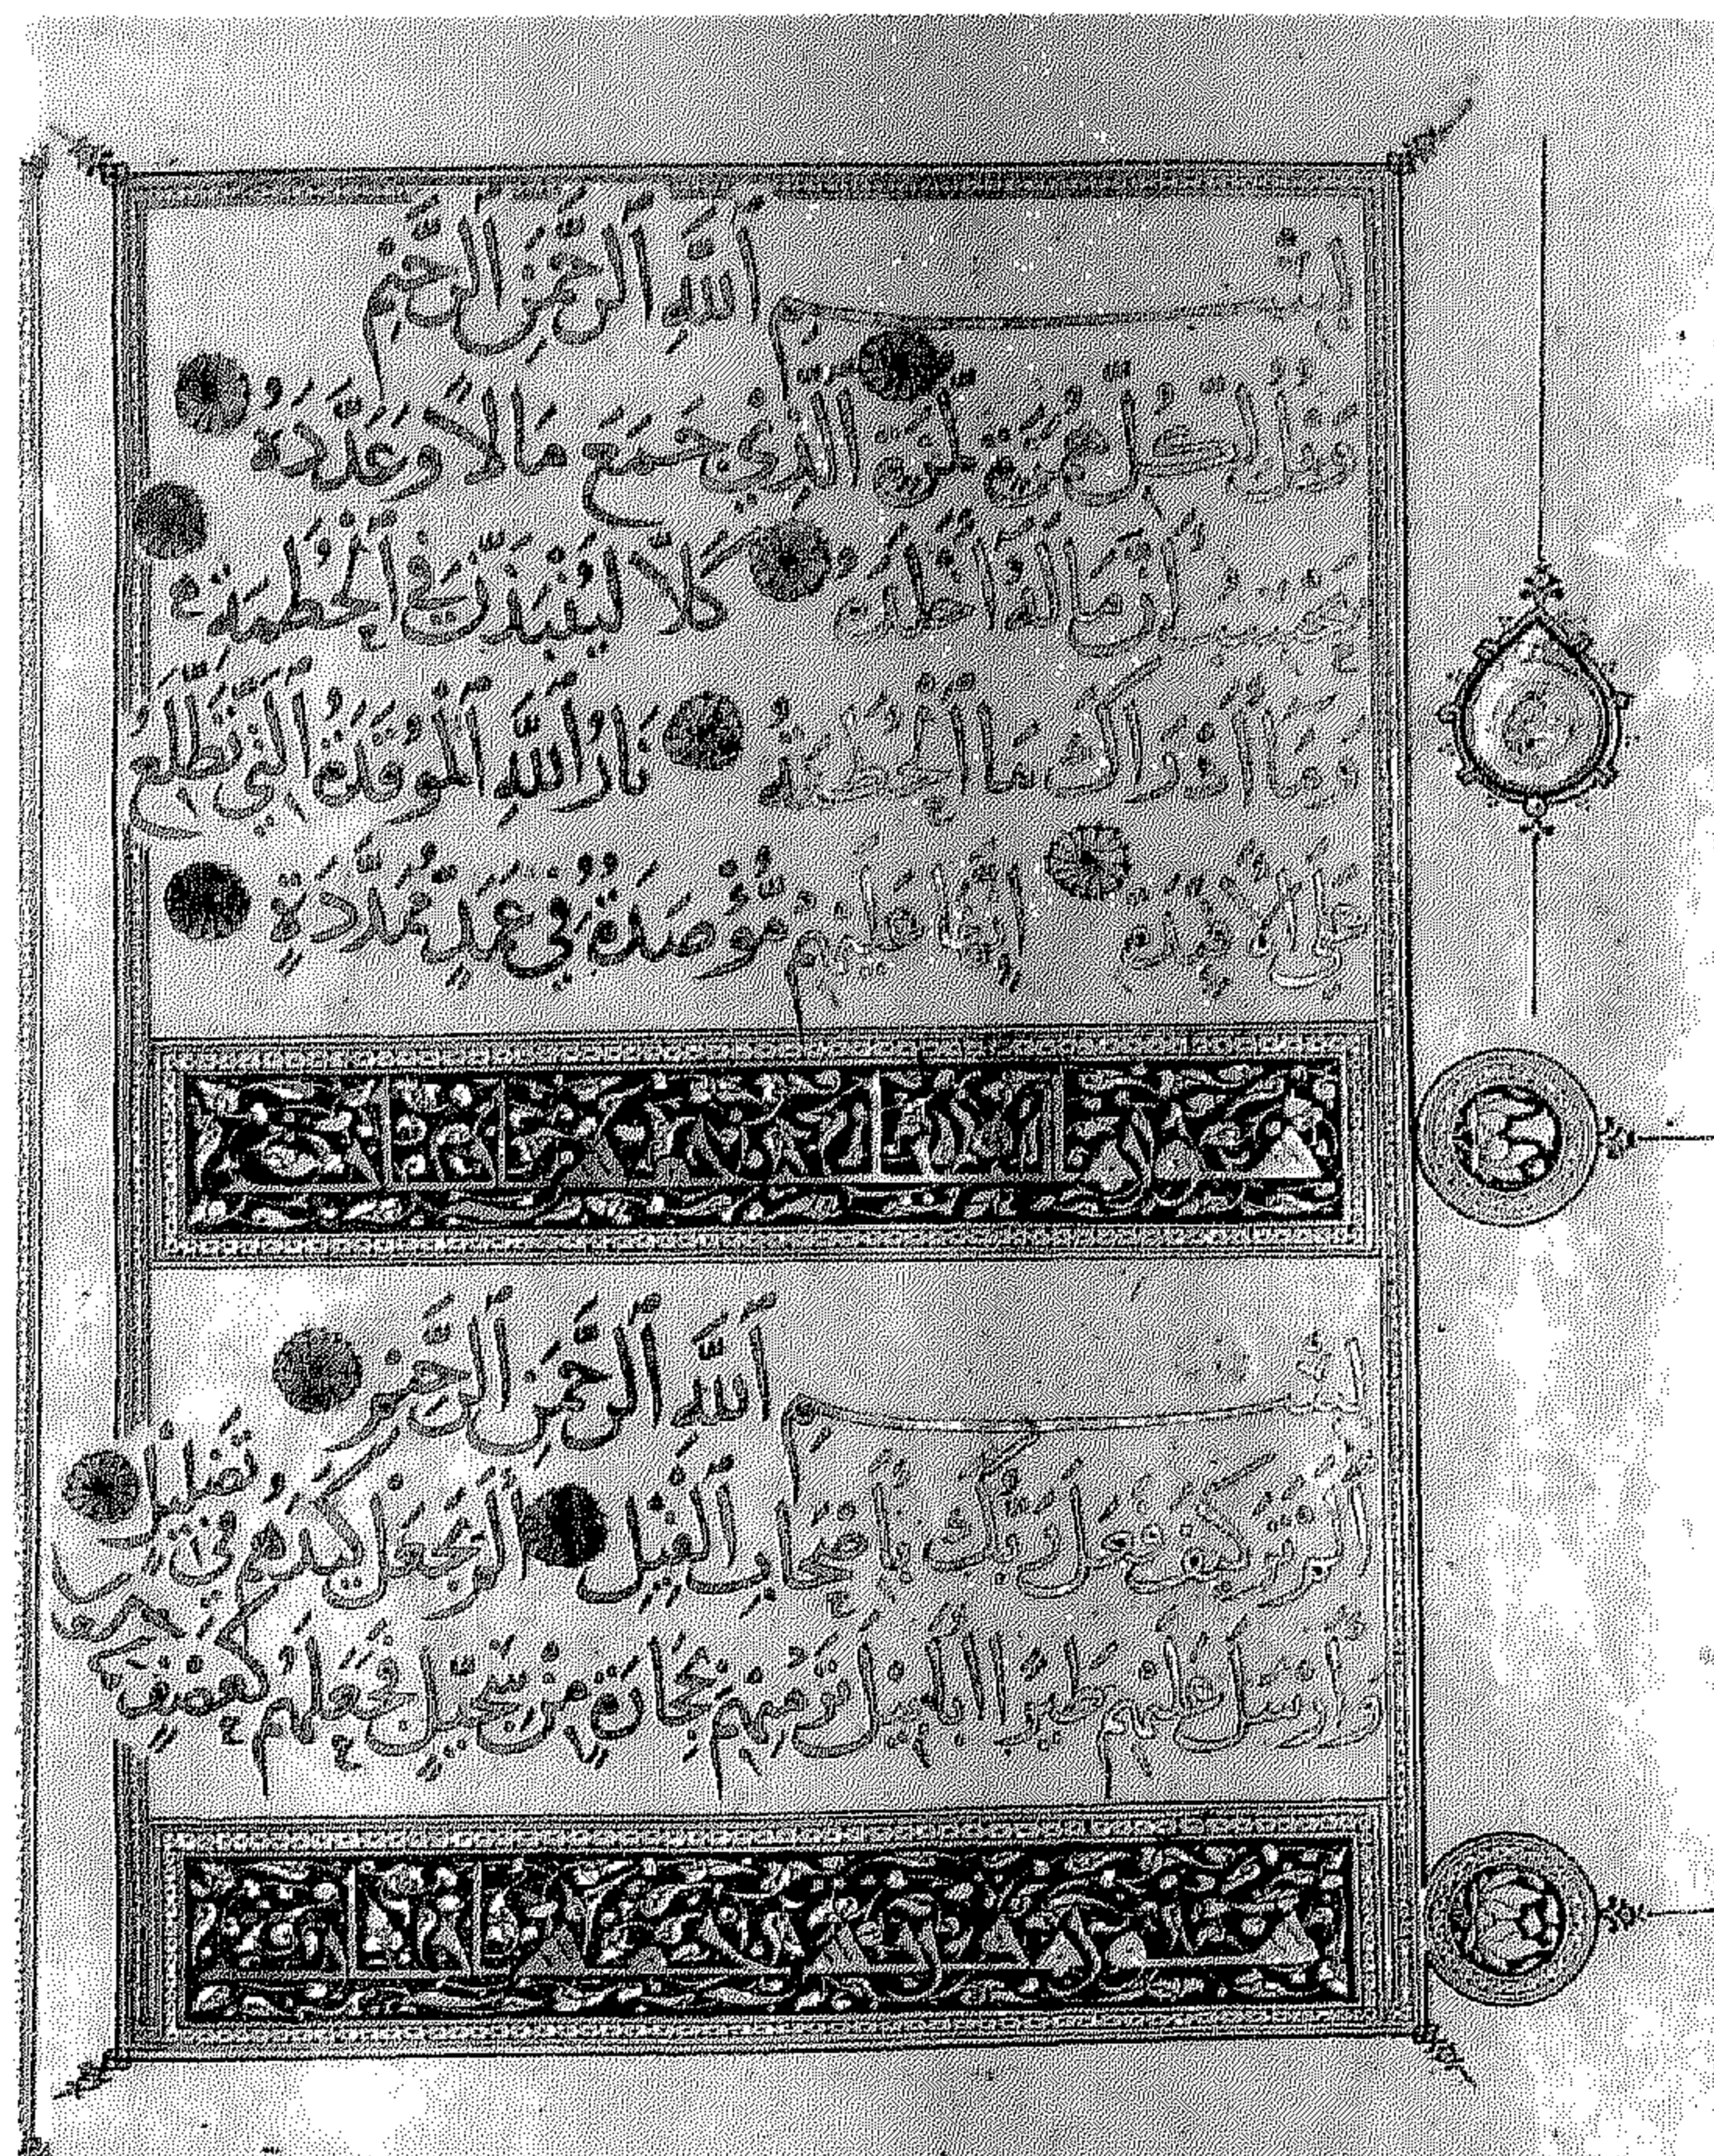 بسم اَللّٰهِ اَلرَّحْمٰنِ اَلرَّحِيْمِ
وَيْلٌ لِكُلِّ هُمَزَةٍ لُمَزَةٍ الَّذِيْ جَمَعَ مَالًا وَعَدَّدَهُ
يَحْسَبُ أَنَّ مَالَهُ أَخْلَدَهُ كَلَّا لَيُنْبَذَنَّ فِي اَلْحُطَمَةِ
وَمَا أَدْرَاكَ مَا اَلْحُطَمَةُ نَارُ اَللّٰهِ اَلْمُوْقَدَةُ اَلَّتِيْ تَطَّلِعُ
عَلَى الْأَفْئِدَةِ إِنَّهَا عَلَيْهِمْ مُّؤْصَدَةٌ فِيْ عَمَدٍ مُّمَدَّدَةٍ
بسم اَللّٰهِ اَلرَّحْمٰنِ اَلرَّحِيْمِ
أَلَمْ تَرَ كَيْفَ فَعَلَ رَبُّكَ بِأَصْحَابِ اَلْفِيْلِ أَلَمْ يَجْعَلْ كَيْدَهُمْ فِيْ تَضْلِيْلٍ
وَأَرْسَلَ عَلَيْهِمْ طَيْرًا أَبَابِيْلَ تَرْمِيْهِمْ بِحِجَارَةٍ مِنْ سِجِّيْلٍ فَجَعَلَهُمْ كَعَصْفٍ مَأْكُولٍ